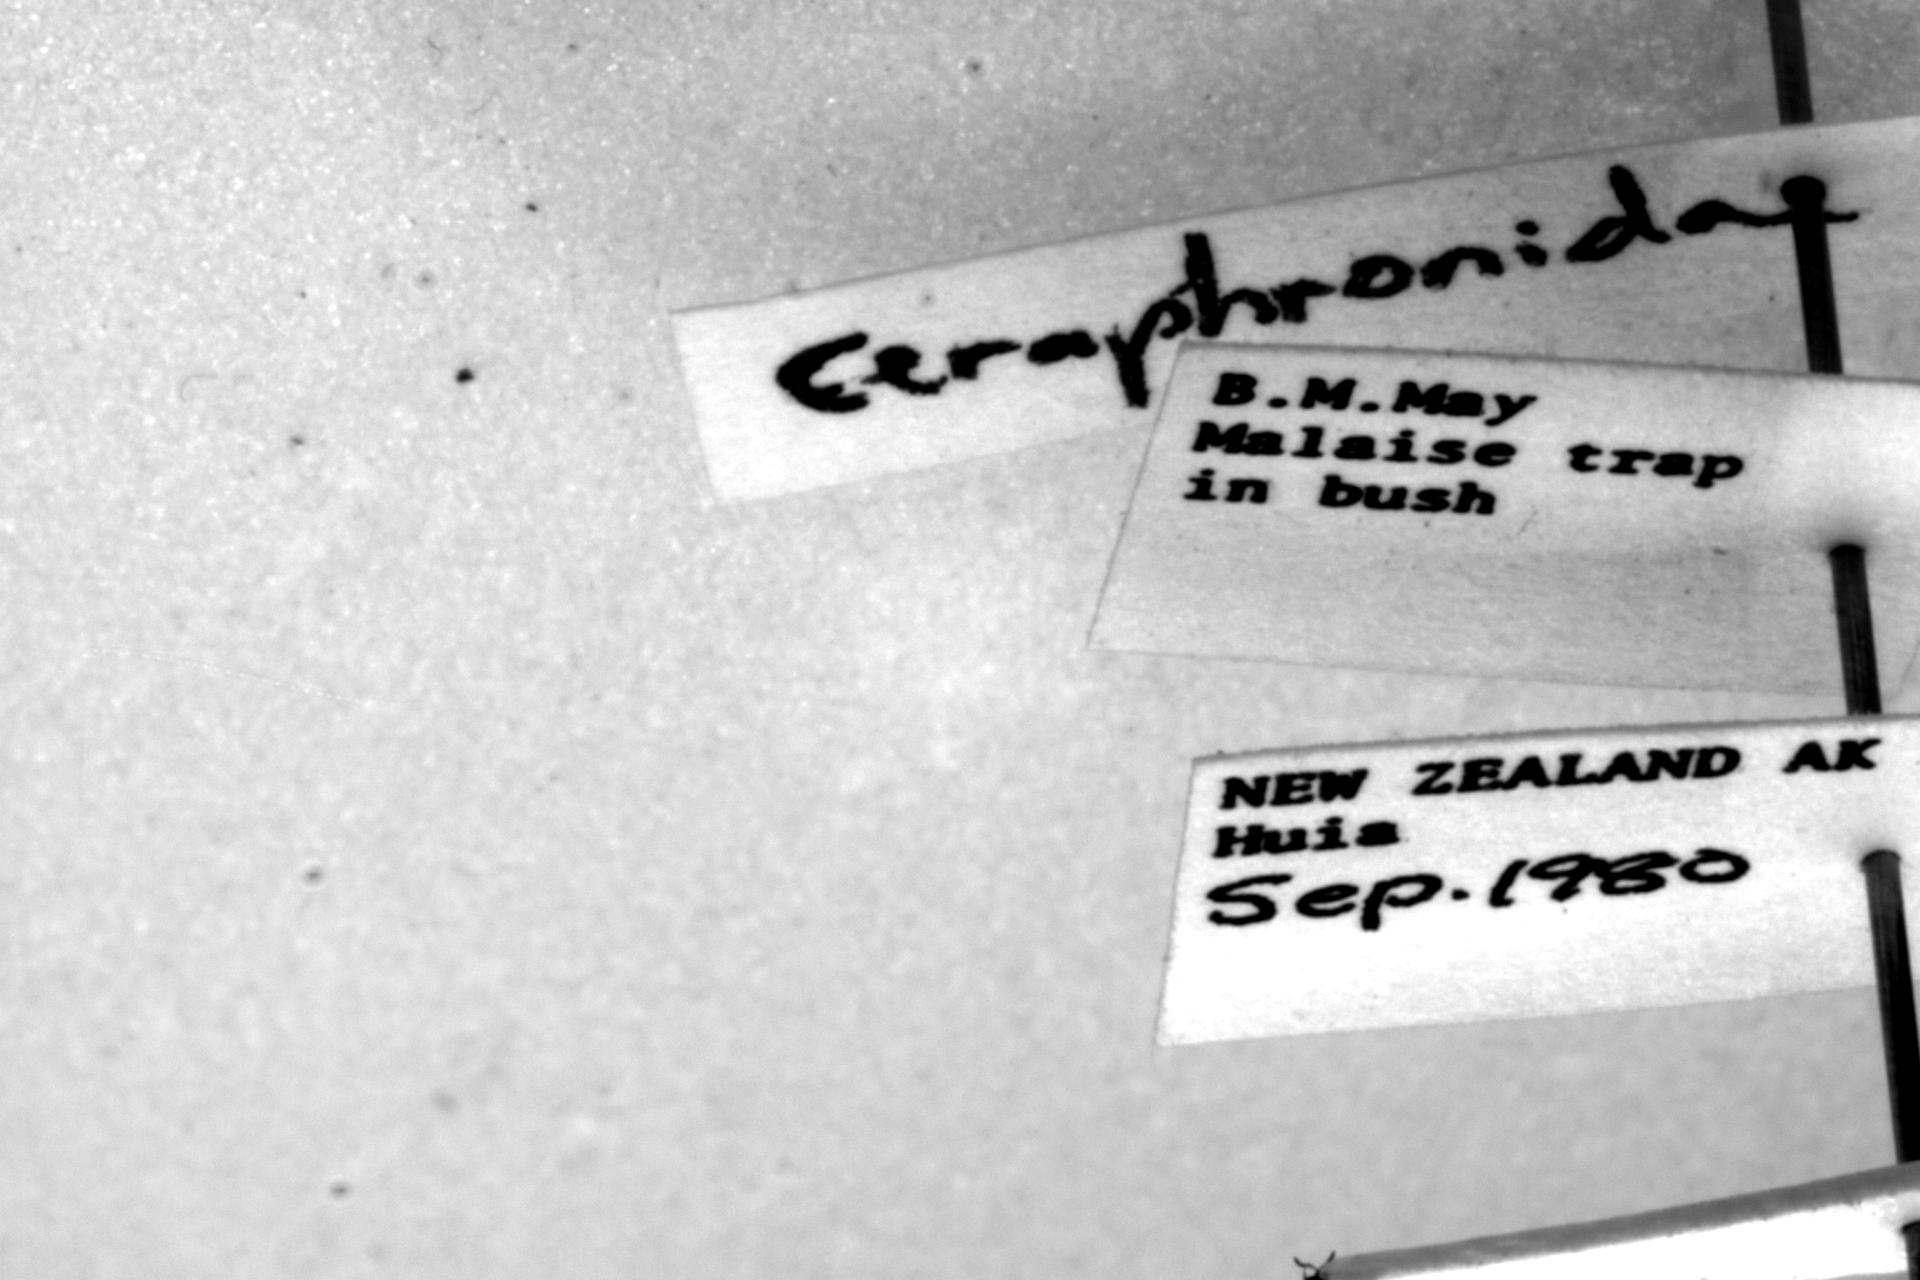 Ceraphronidae
B.M.May
Malaise trap
in bush
NEW ZEALAND AK
Huia
Sep.1980